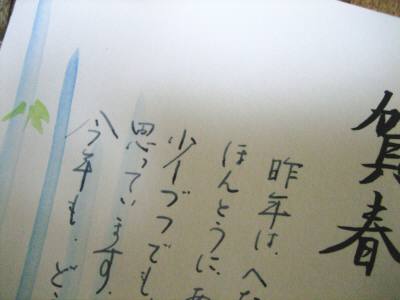 賀春
昨年は、へた
ほんとうに、あ
少しづつでも
思っています。
今年も、どう